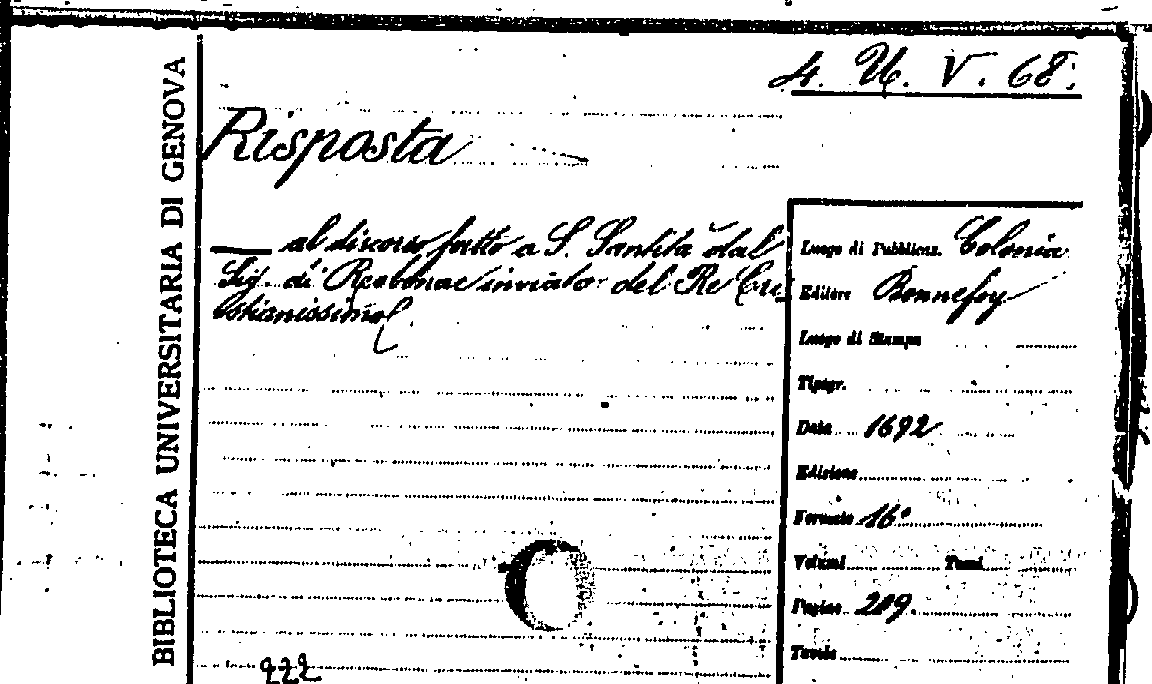 4. U. V. 68.
BIBLIOTECA UNIVERSITARIA DI GENOVA
Risposta
al discorso fatto a S. Santità dal
Sig. di Rebenac inviato del Re Cri
stianissimo
Luogo di Pubblicaz. Colonia
Editore Bonnefoy
Luogo di Stampa
Tipogr.
Data 1692
Edizione
Formato 16°
Volumi Tomi
Pagine 209.
Tavole
222